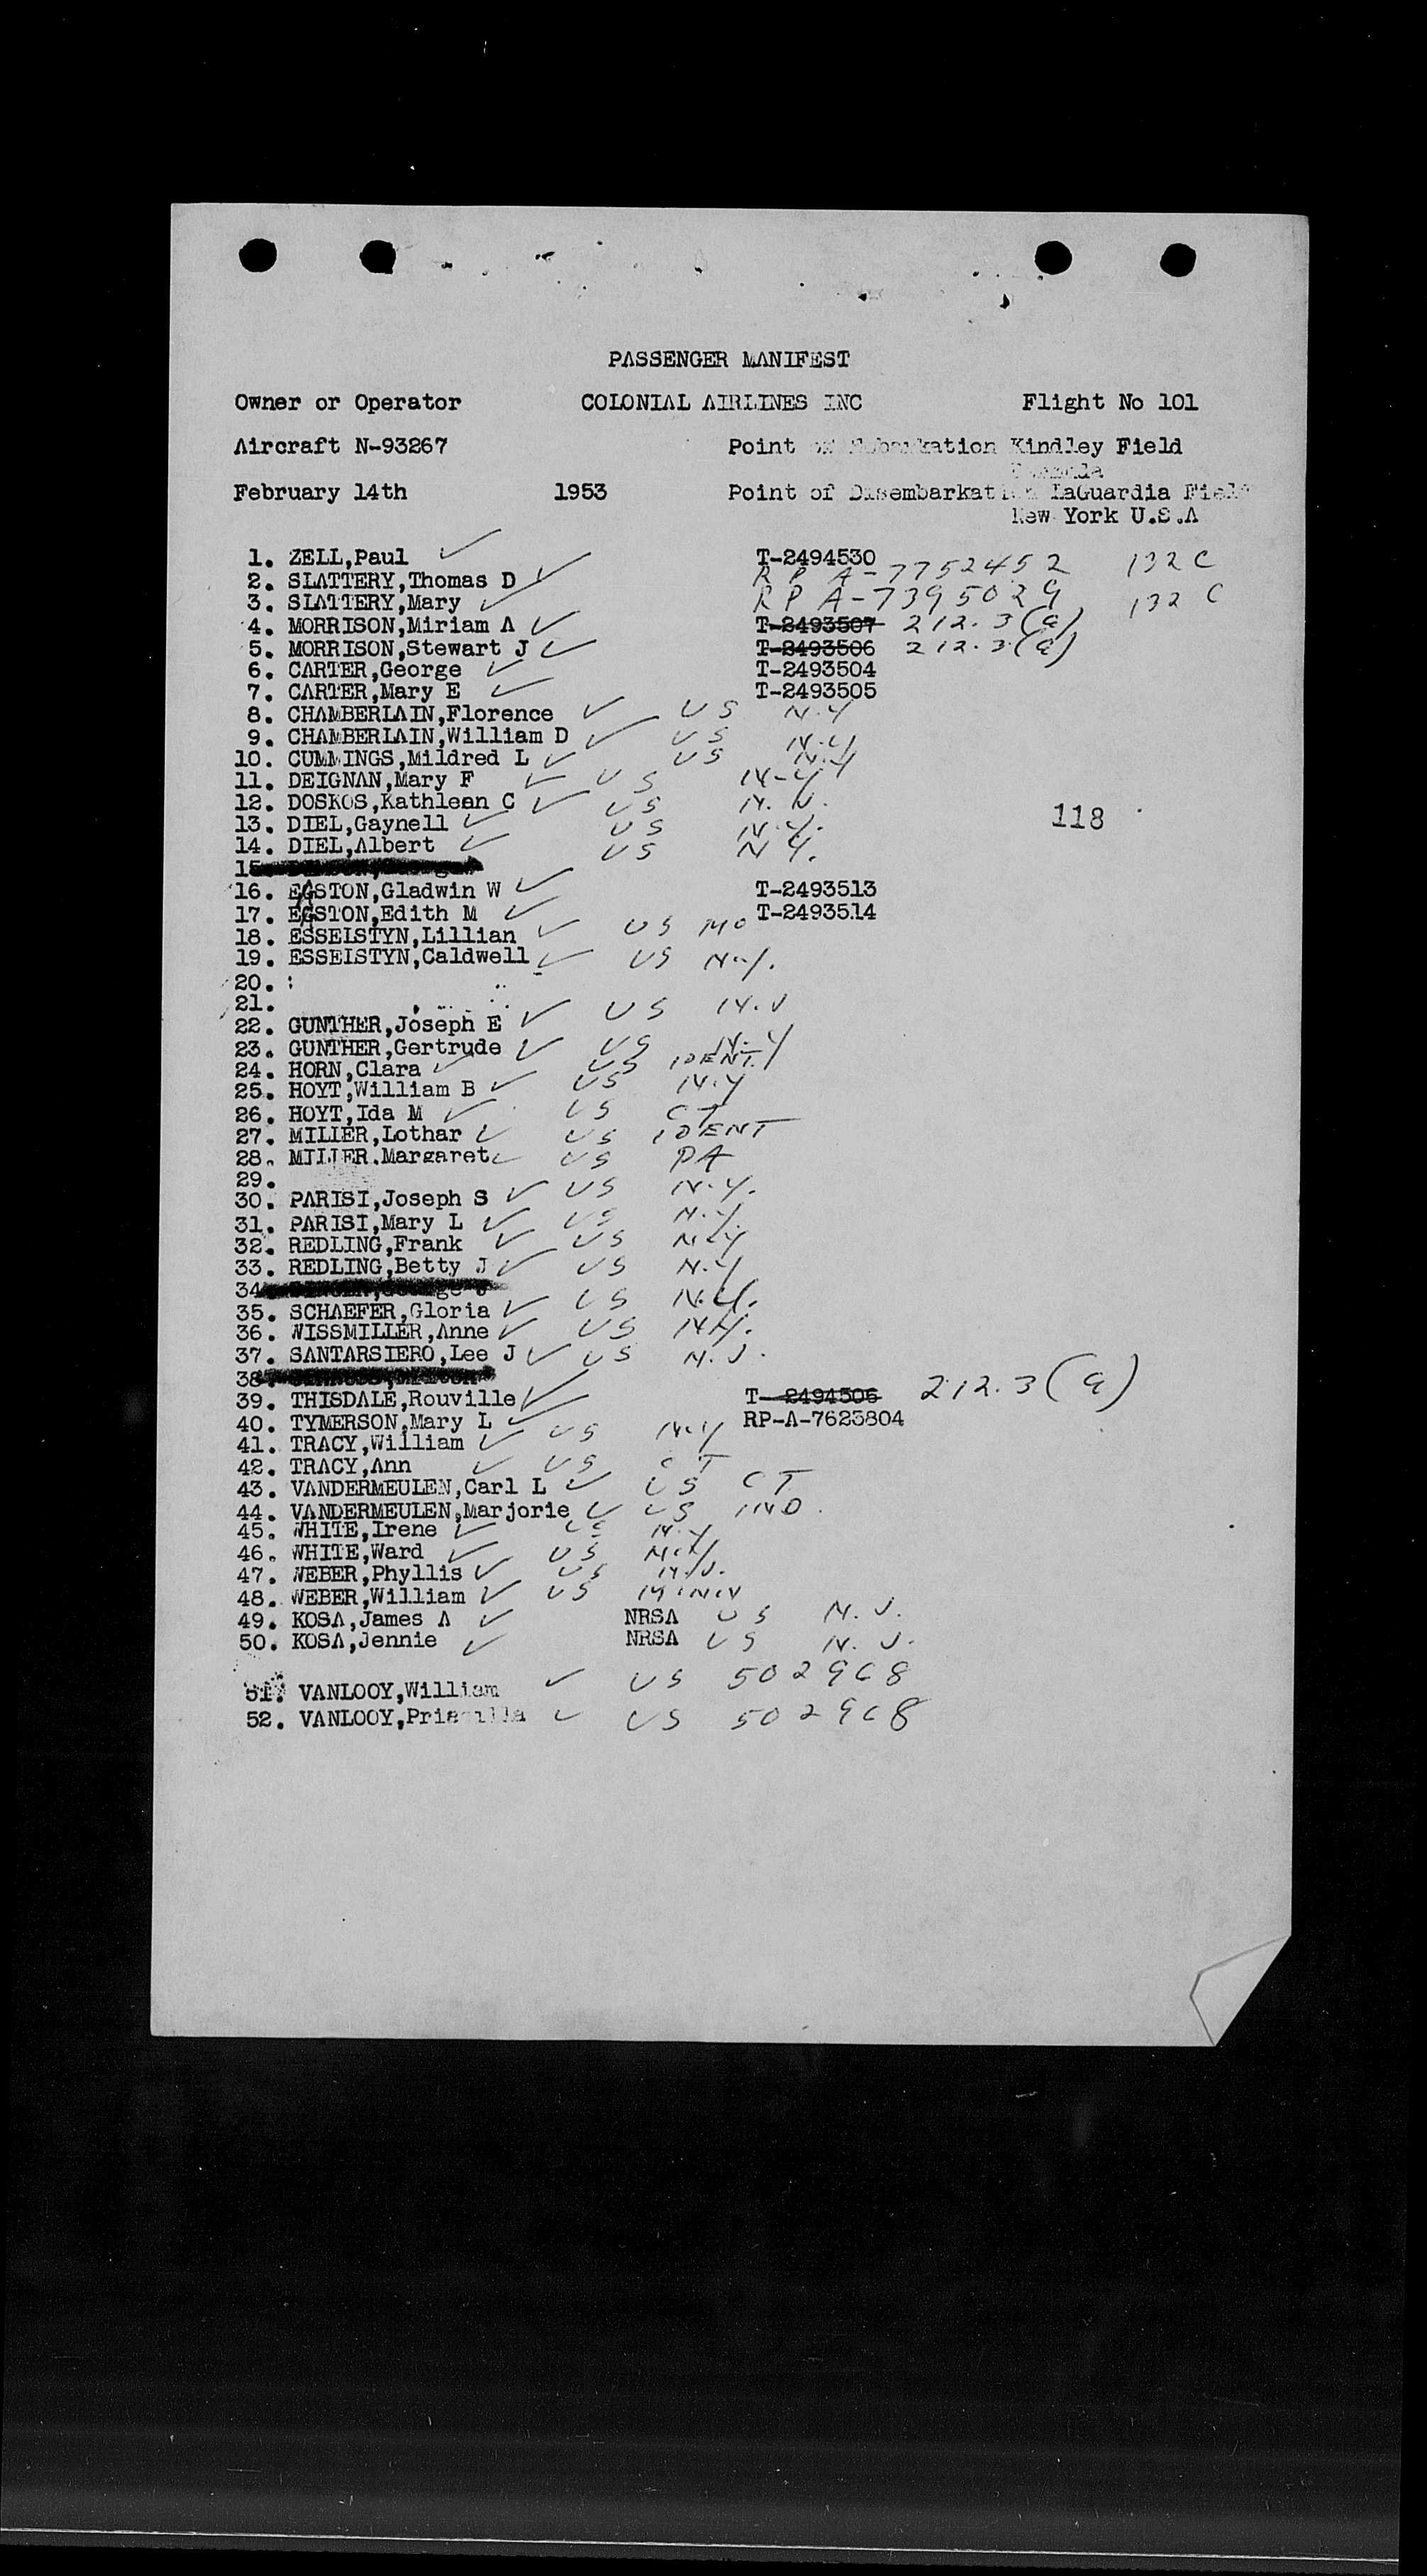 PASSENGER MANIFEST
Owner or Operator COLONIAL AIRLINES INC Flight No 101
Aircraft N-93267 Point Kindley Field
February 14th 1953 Point of Disembarkation LaGuardia
New York U.S.A
1. ZELL,Paul ✓ T-2494530
2. SLATTERY,Thomas D ✓ R P A-7752452 132 C
3. SLATTERY,Mary ✓ R P A-7395029 132 C
4. MORRISON,Miriam A ✓ T-2493507 212.3(a)
5. MORRISON,Stewart J ✓ T-2493506 212.3(a)
6. CARTER,George ✓ T-2493504
7. CARTER,Mary E ✓ T-2493505
8. CHAMBERLAIN,Florence ✓ US N.Y
9. CHAMBERLAIN,William D ✓ US N.Y
10. CUMMINGS,Mildred L ✓ US N.Y
11. DEIGNAN,Mary F ✓ US N-Y
12. DOSKOS,Kathleen C ✓ US
13. DIEL,Gaynell ✓ US N.Y.
118
14. DIEL,Albert ✓ US N Y.
15
16. EASTON,Gladwin W ✓ T-2493513
17. EASTON,Edith M ✓ T-2493514
18. ESSELSTYN,Lillian ✓ US MO
19. ESSELSTYN,Caldwell ✓ US N.Y.
20. :
21.
22. GUNTHER,Joseph E ✓ US N.J
23. GUNTHER,Gertrude ✓ US N.Y
24. HORN,Clara ✓ US IDENT.
25. HOYT,William B ✓ US N.Y
26. HOYT,Ida M ✓ US CT
27. MILLER,Lothar ✓ US IDENT
28. MILLER.Margaret ✓ US PA
29.
30. PARISI,Joseph S ✓ US N.Y.
31. PARISI,Mary L ✓ US N.Y.
32. REDLING,Frank ✓ US N.Y
33. REDLING,Betty J ✓ US N.Y
34
35. SCHAEFER,Gloria ✓ US N.Y.
36. WISSMILLER,Anne ✓ US NH.
37. SANTARSIERO,Lee J ✓ US N.J.
38.
39. THISDALE,Rouville ✓ T-2494506 212.3(a)
40. TYMERSON,Mary L ✓ RP-A-7623804
41. TRACY,William ✓ US N.Y
42. TRACY,Ann ✓ US CT
43. VANDERMEULEN,Carl L ✓ US CT
44. VANDERMEULEN,Marjorie ✓ US IND.
45. WHITE,Irene ✓ US N.Y
46. WHITE,Ward ✓ US
47. WEBER,Phyllis ✓ US N.J.
48. WEBER,William ✓ US
49. KOSA,James A ✓ NRSA US N.J.
50. KOSA,Jennie ✓ NRSA US N.J.
51. VANLOOY,William ✓ US 502968
52. VANLOOY,Priscilla ✓ US 502968